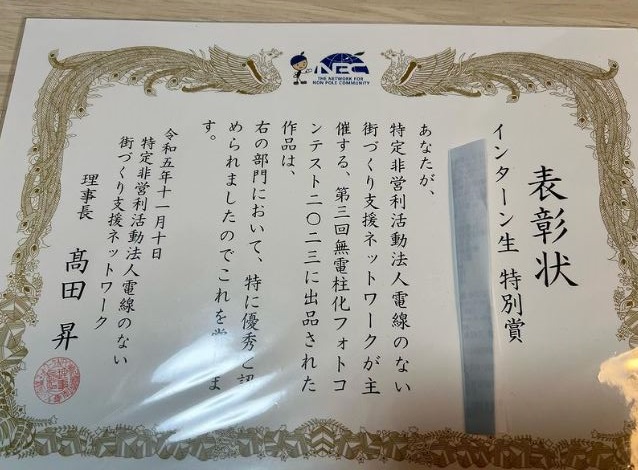 THE NETWORK FOR
NON POLE COMMUNITY
表彰状
インターン生 特別賞
あなたが、
特定非営利活動法人電線のない
街づくり支援ネットワークが主
催する、第三回無電柱化フォトコ
ンテスト二〇二三に出品された
作品は、
右の部門において、特に優秀と認
められましたのでこれを賞しま
す。
令和五年十一月十日
特定非営利活動法人電線のない
街づくり支援ネットワーク
理事長 髙田 昇